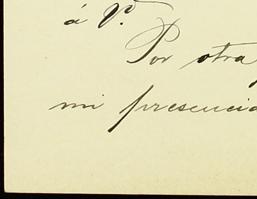 á V.
Por otra
mi presencia